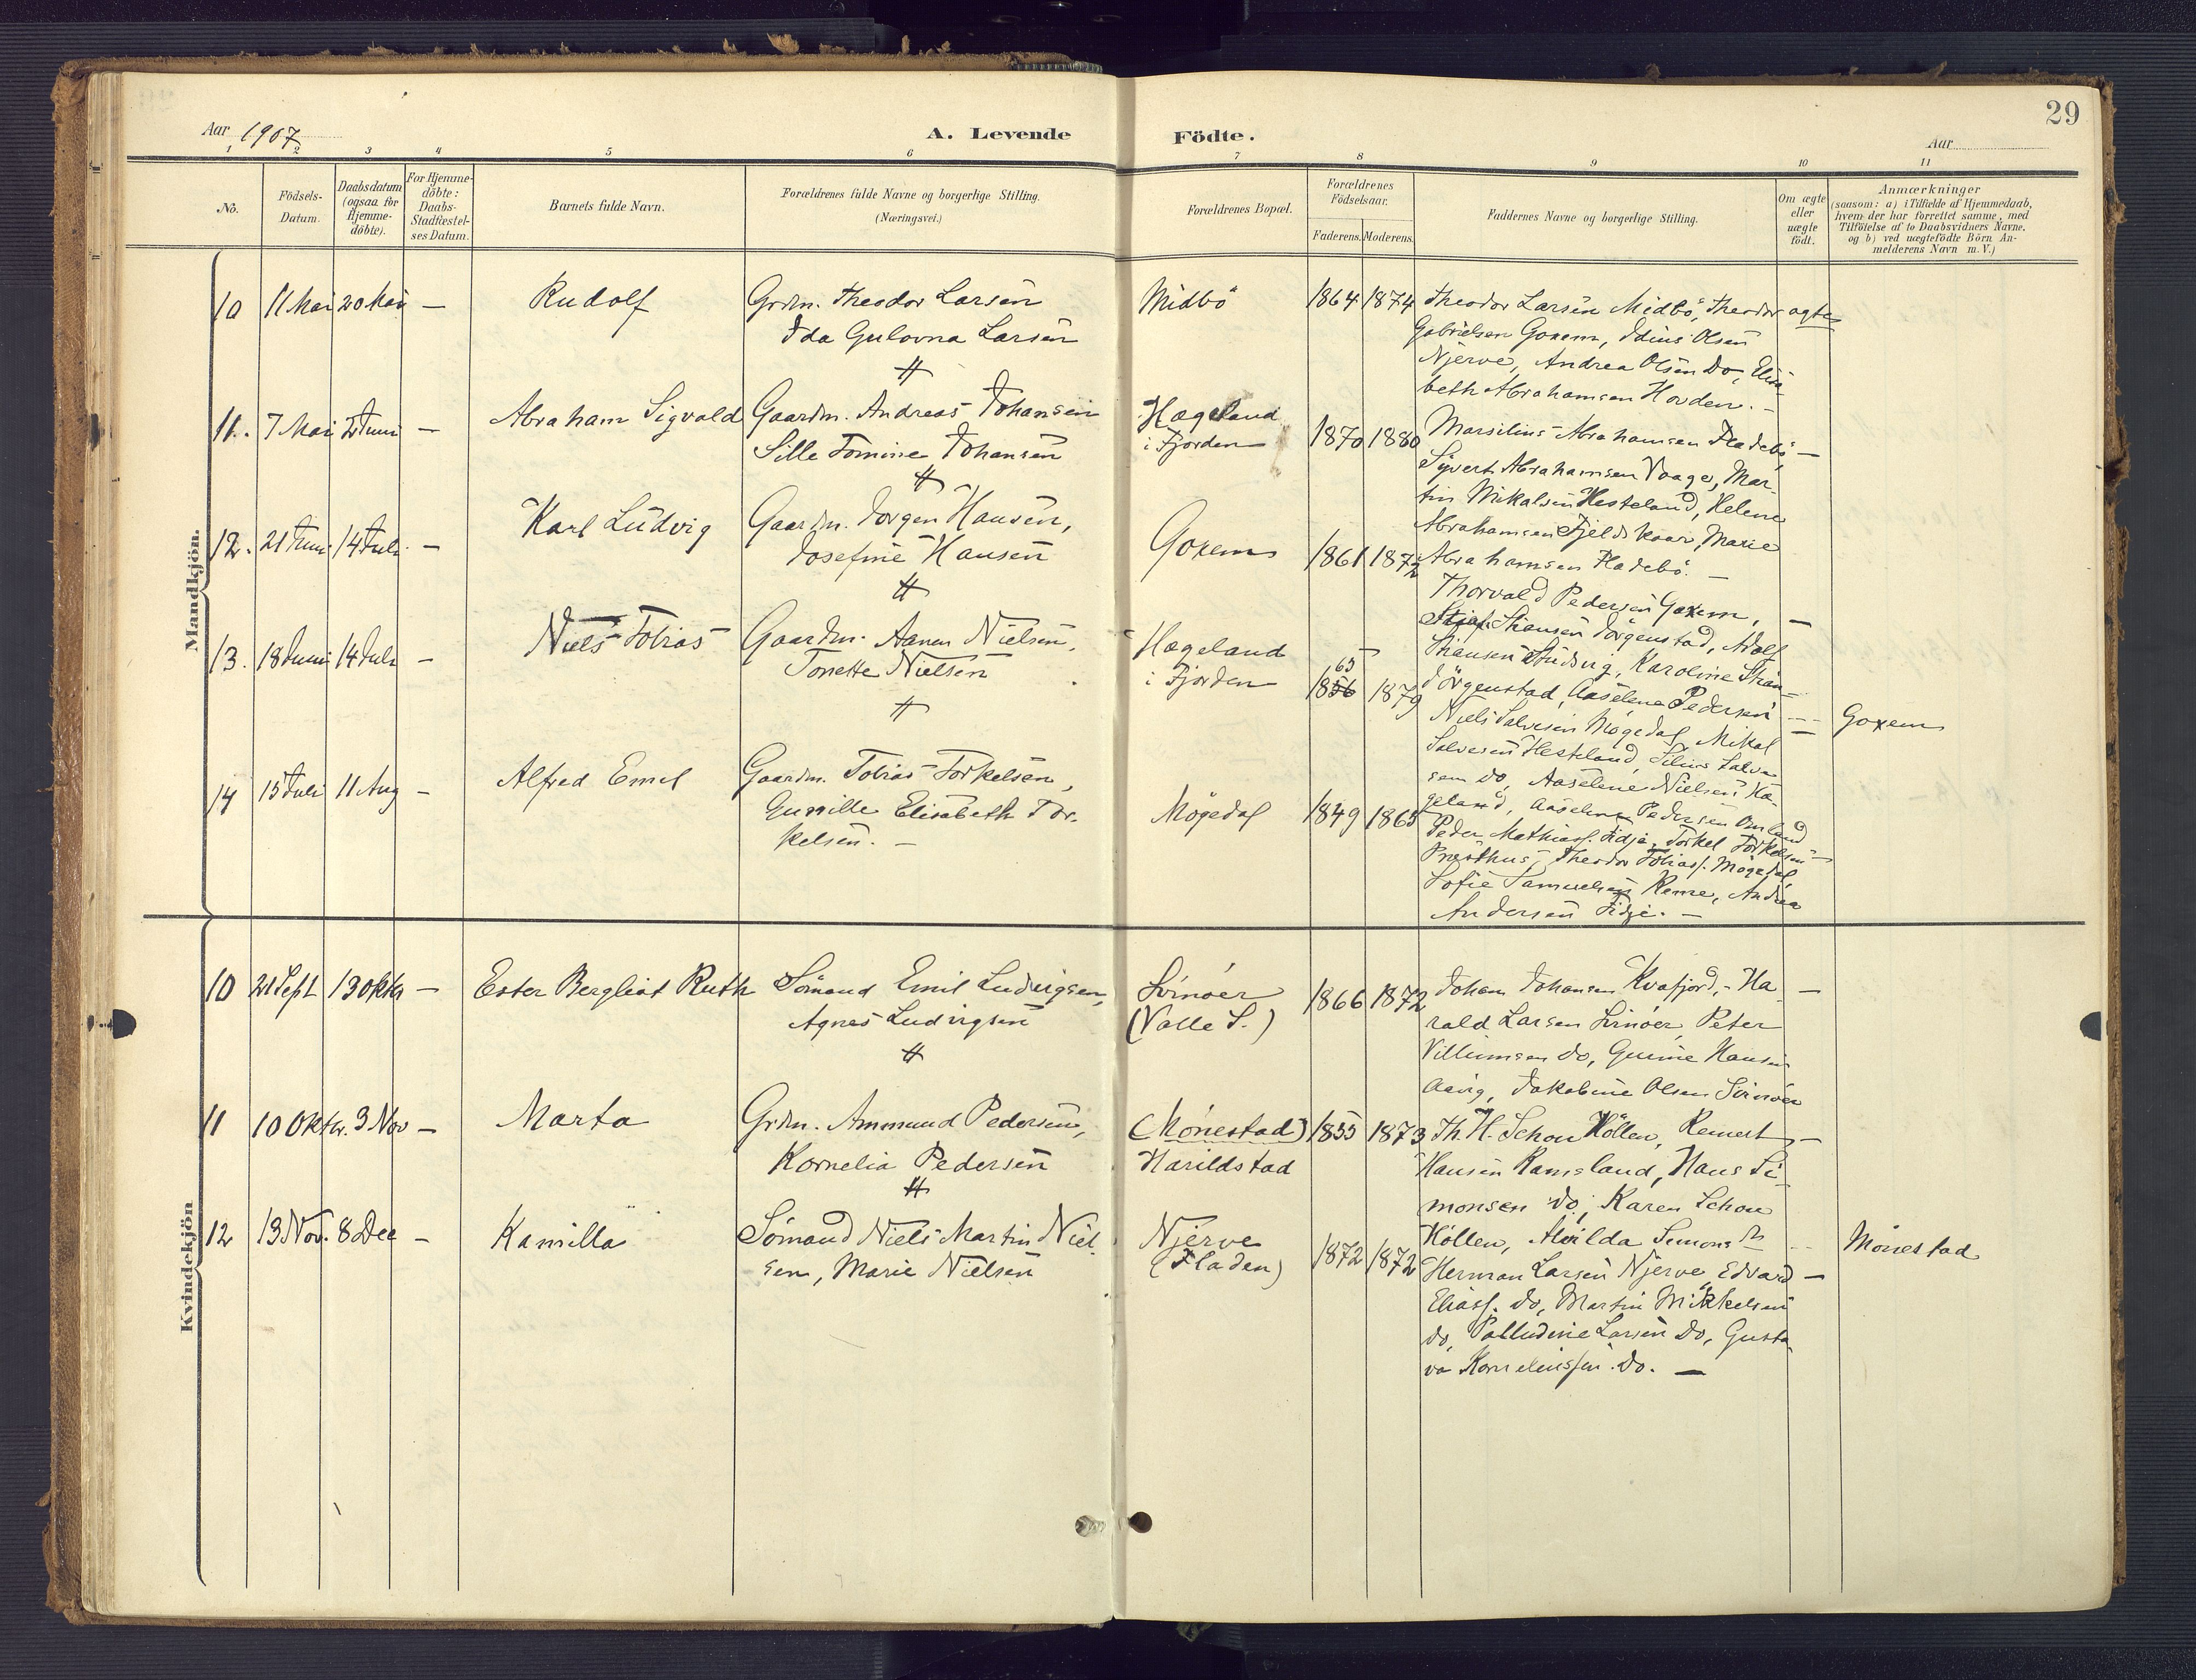 29
Aar 1907
A. Levende
Födte.
Aar
1 2 3 4 5 6 7 8 9 10 11
No.
Födsels-
Datum.
Daabsdatum
(ogsaa for
Hjemme-
döbte).
For Hjemme-
döbte:
Daabs-
Stadfæstel-
ses Datum.
Barnets fulde Navn.
Forældrenes fulde Navne og borgerlige Stilling.
(Næringsvei.)
Forældrenes Bopæl.
Forældrenes
Födselsaar.
Faderens.
Moderens.
Faddernes Navne og borgerlige Stilling.
Om ægte
eller
uægte
födt.
Anmærkninger
(saasom: a) i Tilfælde af Hjemmedaab,
hvem der har forrettet samme, med
Tilföielse af to Daabsvidners Navne,
og b) ved uægtefödte Börn An-
melderens Navn m. V.)
Mandkjön.
10 11 Mai 20 Mai — Rudolf
Grdm. Theodor Larsen
Ida Gulovna Larsen
Midbö 1864 1874
Theodor Larsen Midbö, Theodor
Gabrielsen Goxem, Idius Olsen
Njerve, Andrea Olsen do, Elisa-
beth Abrahamsen Hovden. —
ægte
11. 7 Mai 2 Juni — Abraham Sigvald
Gaardm. Andreas Johansen
Sille Tomine Johansen
Hægeland
i Fjorden
1870 1880
Marsilius Abrahamsen Fladebö,
Sigvert Abrahamsen Vaage, Mar-
tin Mikalsen Hesteland, Helene
Abrahamsen Fjeldskaar, Marie
Abrahamsen Fladebö. —
—
12. 21 Juni 14 Juli — Karl Ludvig
Gaardm. Jörgen Hansen,
Josefine Hansen
Goxem 1861 1872
Thorvald Pedersen Goxem,
Stiansen Jörgenstad, Adolf
Stiansen Karoline Stian-
Jörgenstad, Aaselene Pedersen
—
Goxem
13. 18 Juni 14 Juli — Niels Tobias
Gaardm. Aanen Nielsen,
Tonette Nielsen
Hægeland
i Fjorden
65
1856 1879
Niels Salvesen Mögedal, Mikal
Salvesen Hesteland, Salve-
sen do, Aaselene Nielsen Hæ-
geland, Aaselene Pedersen Omland
—
14 15 Juli 11 Aug — Alfred Emil
Gaardm. Tobias Torkelsen,
Gunille Elisabeth Tor-
kelsen. —
Mögedal 1849 1865
Peder Mathiass. Fidje, Torkel Torkelsen
Præsthus, Theodor Tobiass. Mögedal
Sofie Samuelsen Rame, Andrea
Andersen Fidje. —
—
Kvindekjön
10 21 Sept 13 Oktr — Ester Bergliot Ruth
Sömand Emil Ludvigsen,
Agnes Ludvigsen
Svinöer
(Valle S.)
1866 1872
Johan Johansen Kvafjord, Ha-
rald Larsen Svinöer, Peter
Villumsen do, Gurine Hansen
Aavig, Jakobine Olsen Svinöer
—
11 10 Oktbr. 3 Nov — Marta
Grdm. Ammund Pedersen,
Kornelia Pedersen
(Mönestad)
Harildstad
1855 1873
Th. H. Schou Höllen, Reinert
Hansen Ramsland, Hans Si-
monsen do, Karen Schou
Höllen, Alvilda Simons
—
Mönestad
12 13 Nov. 8 Dec — Kamilla
Sömand Niels Martin Niel-
sen, Marie Nielsen
Njerve
(Fladen)
1872 1872
Herman Larsen Njerve, Edvard
Eliass. do, Martin Mikkelsen
do, Palludine Larsen do, Gusta-
va Korneliussen do. —
—